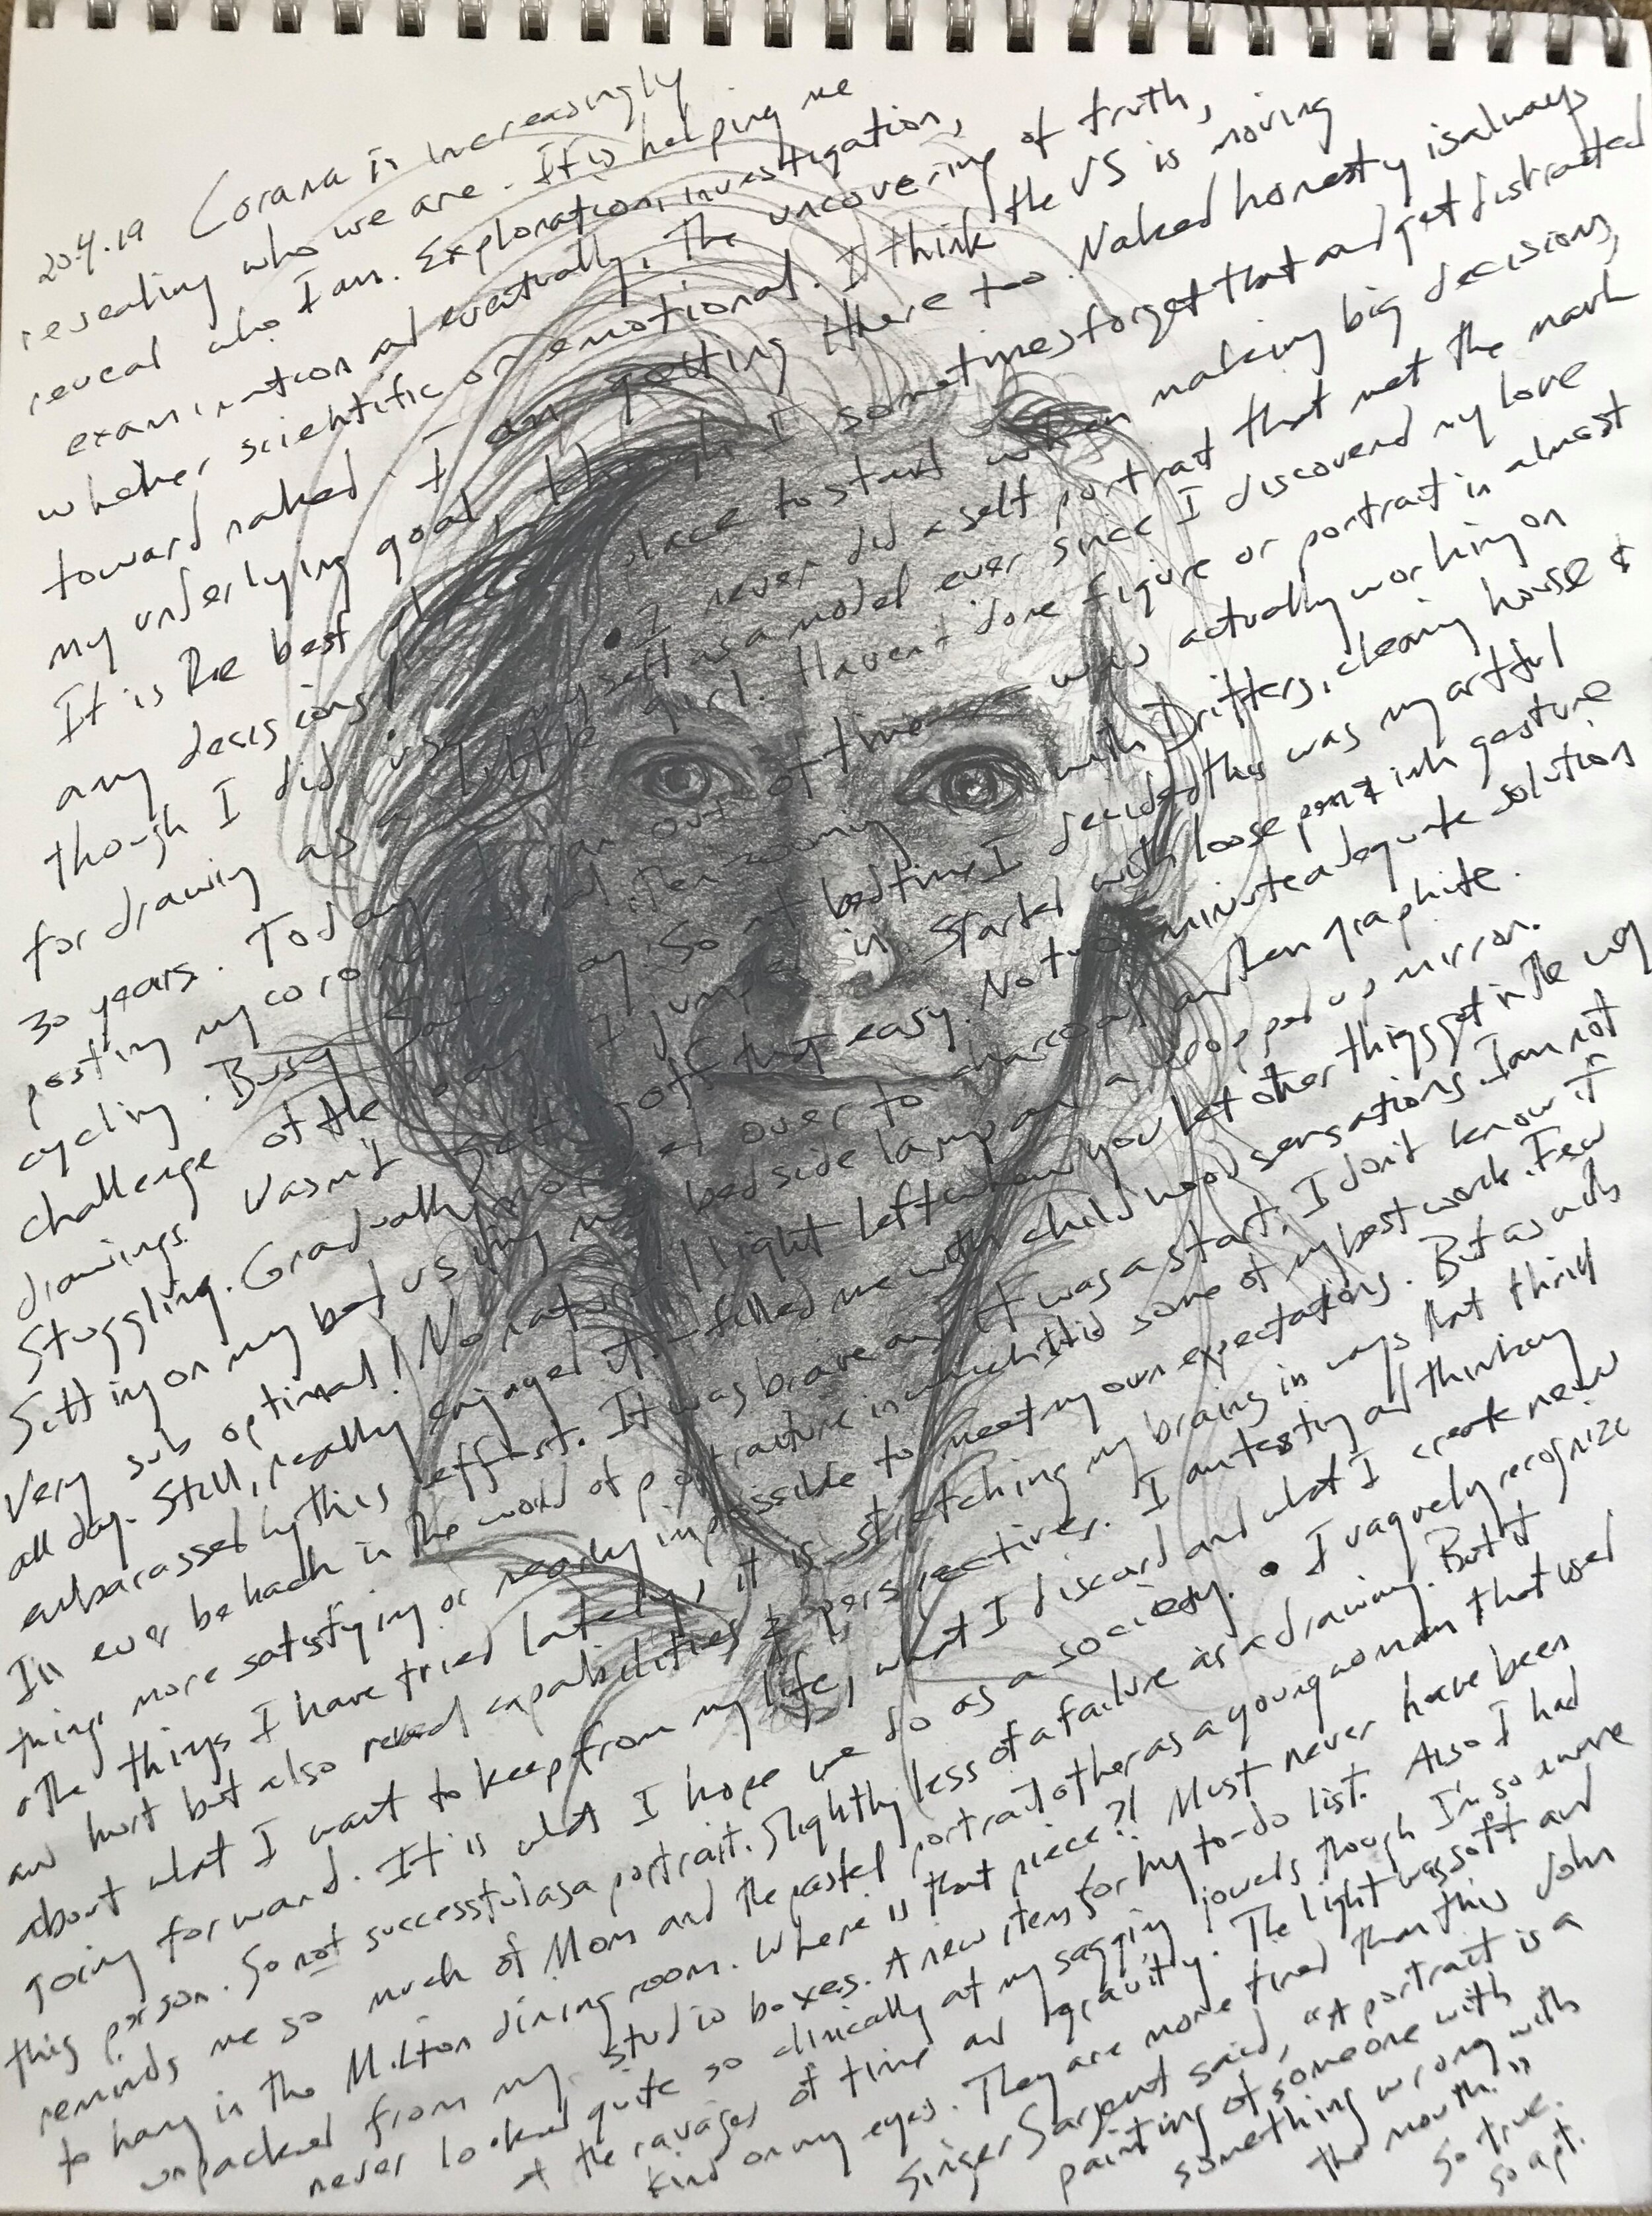 20.4.19 Corona is increasingly
revealing who we are. It is helping me
reveal who I am. Exploration, investigation,
examination and eventually, the uncovering of truth,
whether scientific or emotional. I think the US is moving
toward naked. I am getting there too. Naked honesty is always
my underlying goal, though I sometimes forget that and get distracted
It is the best place to start when making big decisions,
any decisions! • I never did a self portrait that met the mark
though I did use myself as a model ever since I discovered my love
for drawing as a little girl. Haven't done figure or portrait in almost
30 years. Today I ran out of time was actually working on
posting my corona and then zooming with Drifters, cleaning house &
cycling. Busy Saturday! So at bedtime I decided this was my artful
challenge of the day. I jumped in. Started with loose pen & ink gesture
drawings. Wasn't getting off that easy. No two minute adequate solution
Struggling. Gradually moved over to charcoal and then graphite.
Sitting on my bed using my bedside lamp and a propped up mirror.
Very sub optimal! No natural light left when you let other things get in the way
all day. Still, really enjoyed it - filled me with childhood sensations. I am not
embarassed by this effort. It was brave and it was a start. I don't know if
I'll ever be back in the world of portraiture in which I did some of my best work. Few
things more satisfying or nearly impossible to meet my own expectations. But as with
other things I have tried lately, it is stretching my brain in ways that thrill
and hurt but also reveal capabilities & perspectives. I am testing and thinking
about what I want to keep from my life, what I discard and what I create new
going forward. It is what I hope we do as a society. • I vaguely recognize
this person. So not successful as a portrait. Slightly less of a failure as a drawing. But it
reminds me so much of Mom and the pastel portrait of her as a young woman that used
to hang in the Milton dining room. Where is that piece?! Must never have been
unpacked from my studio boxes. A new item for my to-do list. Also I had
never looked quite so clinically at my sagging jowels though I'm so aware
of the ravages of time and gravity. The light was soft and
kind on my eyes. They are more tired than this John
Singer Sargent said, "A portrait is a
painting of someone with
something wrong with
the mouth."
So true.
So apt.